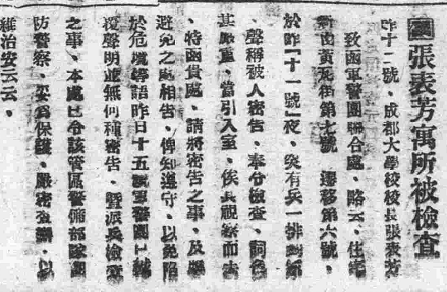 張表芳寓所被檢查
昨十二號、成都大學校校長張表芳
致函軍警團聯合處、略云、住宅
新南黃死街第七號、遷移第六號、
於昨「十一號」夜、突有兵一排到家
、聲稱被人密告、奉令檢查、詞色
甚厲、當引入室、俟兵視察而去
、特函貴處、請將密告之事、及
避免之處相告、俾知遵守、以免陷
於危境等語昨日十五號軍警團已
復聲明並無何種密告、暨派兵檢查
之事、本處已令該管區警備部隊團
防警察、妥為保護、嚴密查緝、以
維治安云云、